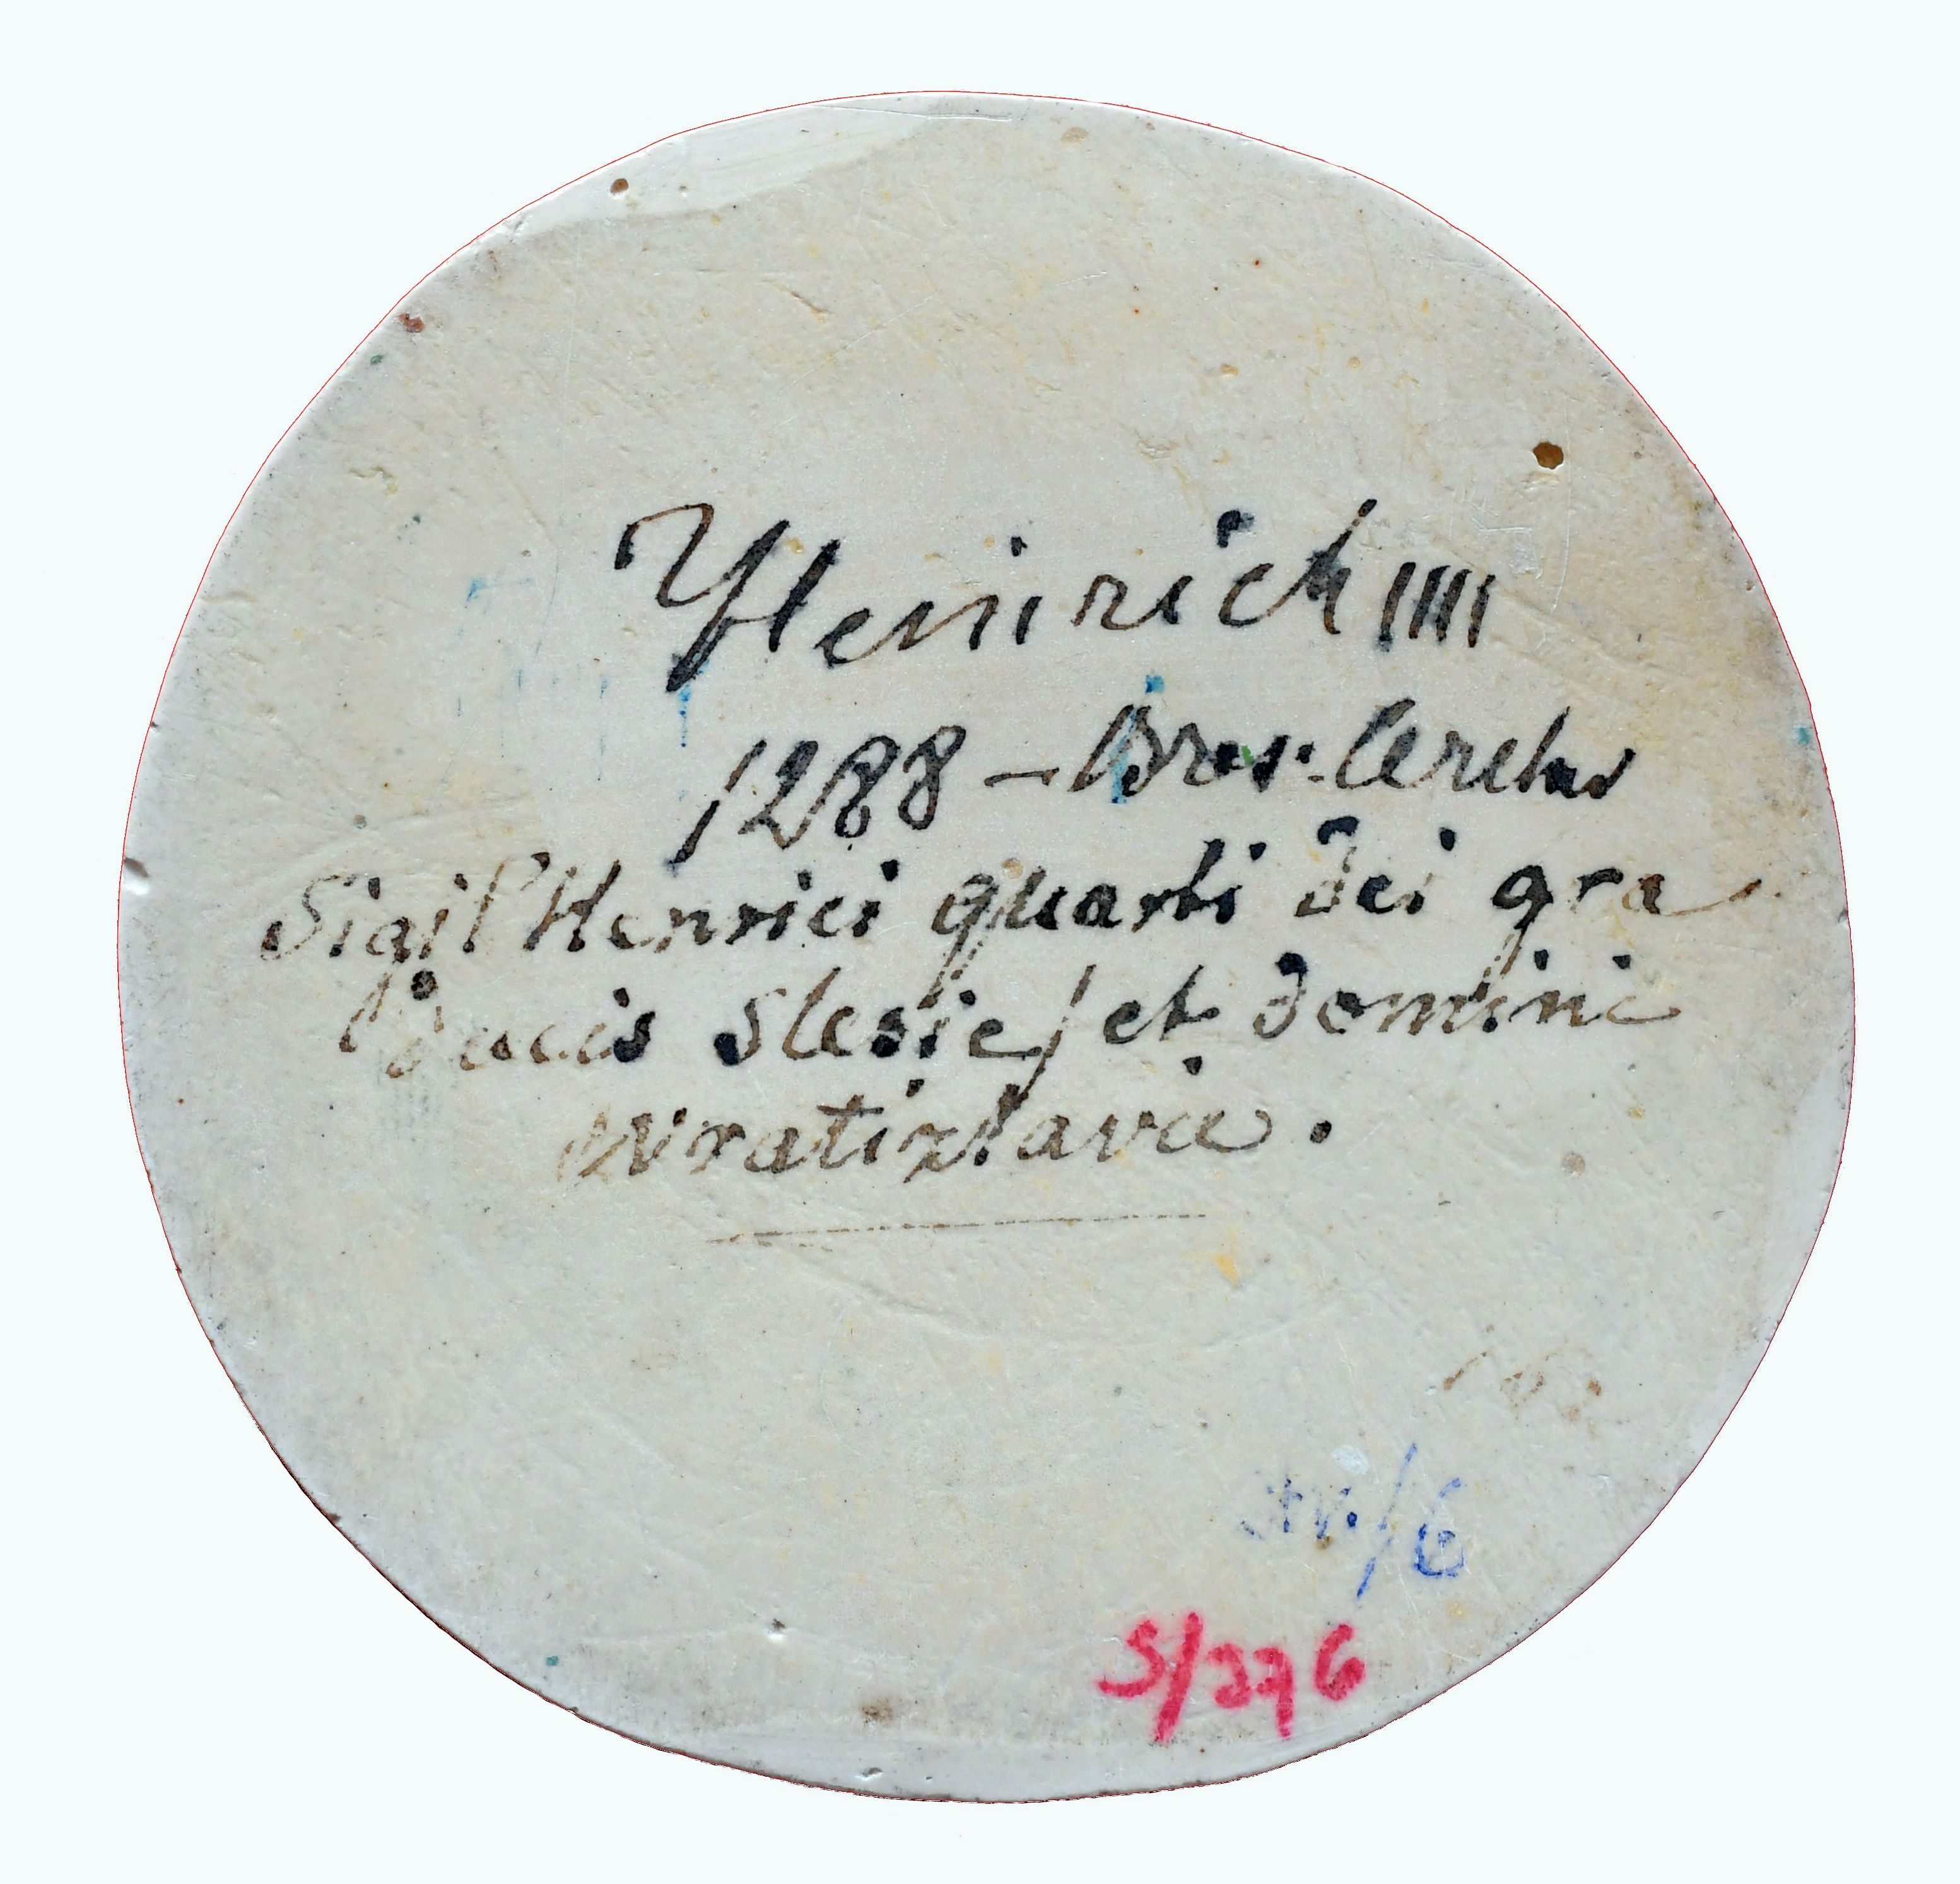 Heinrich IIII
1288 – Bres:
Sigil' Henrici quarti dei gra
Ducis Slesie / et domini
wratizlavie.
S/276